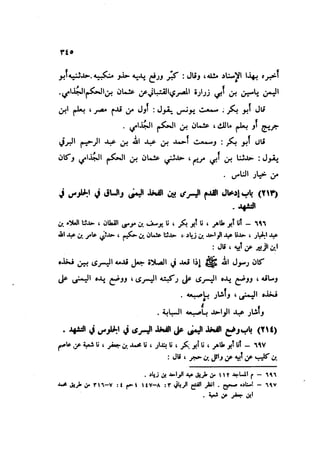 ٣٤٥
أخبره بهذا الإسناد مثله ، وقال : كبّر ورفع يديه حين سجد . حدثنا أبو
اليمن بن زرزر
قال أبو بكر ; سمعت يونس يقول : أول من قدم مصر ، بعلم ابن
جريج أو بعلم مالك ، عثمان بن الحكم الجذامي .
قال أبو بكر : وسمعت أحمد بن عبد الله بن عبد الرحيم البرقي
يقول : حدثنا ابن أبي مريم ، حدثني عثمان بن الحكم الجذامي وكان
من خيار الناس .
(٢١٣) باب إدخال القدم اليسرى بين الفخذ اليمنى والساق في الجلوس في
التشهد .
٦٩٦ - أنا أبو طاهر ، نا أبو بكر ، نا يوسف بن موسى القطان ، حدثنا العلاء بن
عبد الجبار ، حدثنا عبد الواحد بن زياد ، حدثنا عثمان بن حكيم ، حدثني عامر بن عبد الله
ابن الزبير عن أبيه ، قال :
كان رسول الله ﷺ إذا قعد في الصلاة جعل قدمه اليسرى بين فخذه
وساقه ، ووضع يده اليسرى على ركبته اليسرى ، ووضع يده اليمنى على
فخذه اليمنى ، وأشار بإصبعه .
وأشار عبد الواحد بإصبعه السبابة .
(٢١٤) باب وضع الفخذ اليمنى على الفخذ اليسرى في الجلوس في التشهد .
٦٩٧ - أنا أبو طاهر ، نا أبو بكر ، نا بندار ، نا محمد بن جعفر ، نا شعبة عن عاصم
بن كليب عن أبيه عن وائل بن حجر ، قال :
٦٩٦ - م المساجد ١١٢ من طريق عبد الواحد بن زياد .
٦٩٧ - إسناده صحيح . انظر الفتح الرباني ٣ : ٨-١٤٧ ؛ حم ٤ : ٧-٣١٦ من طريق محمد
ابن جعفر عن شعبة .